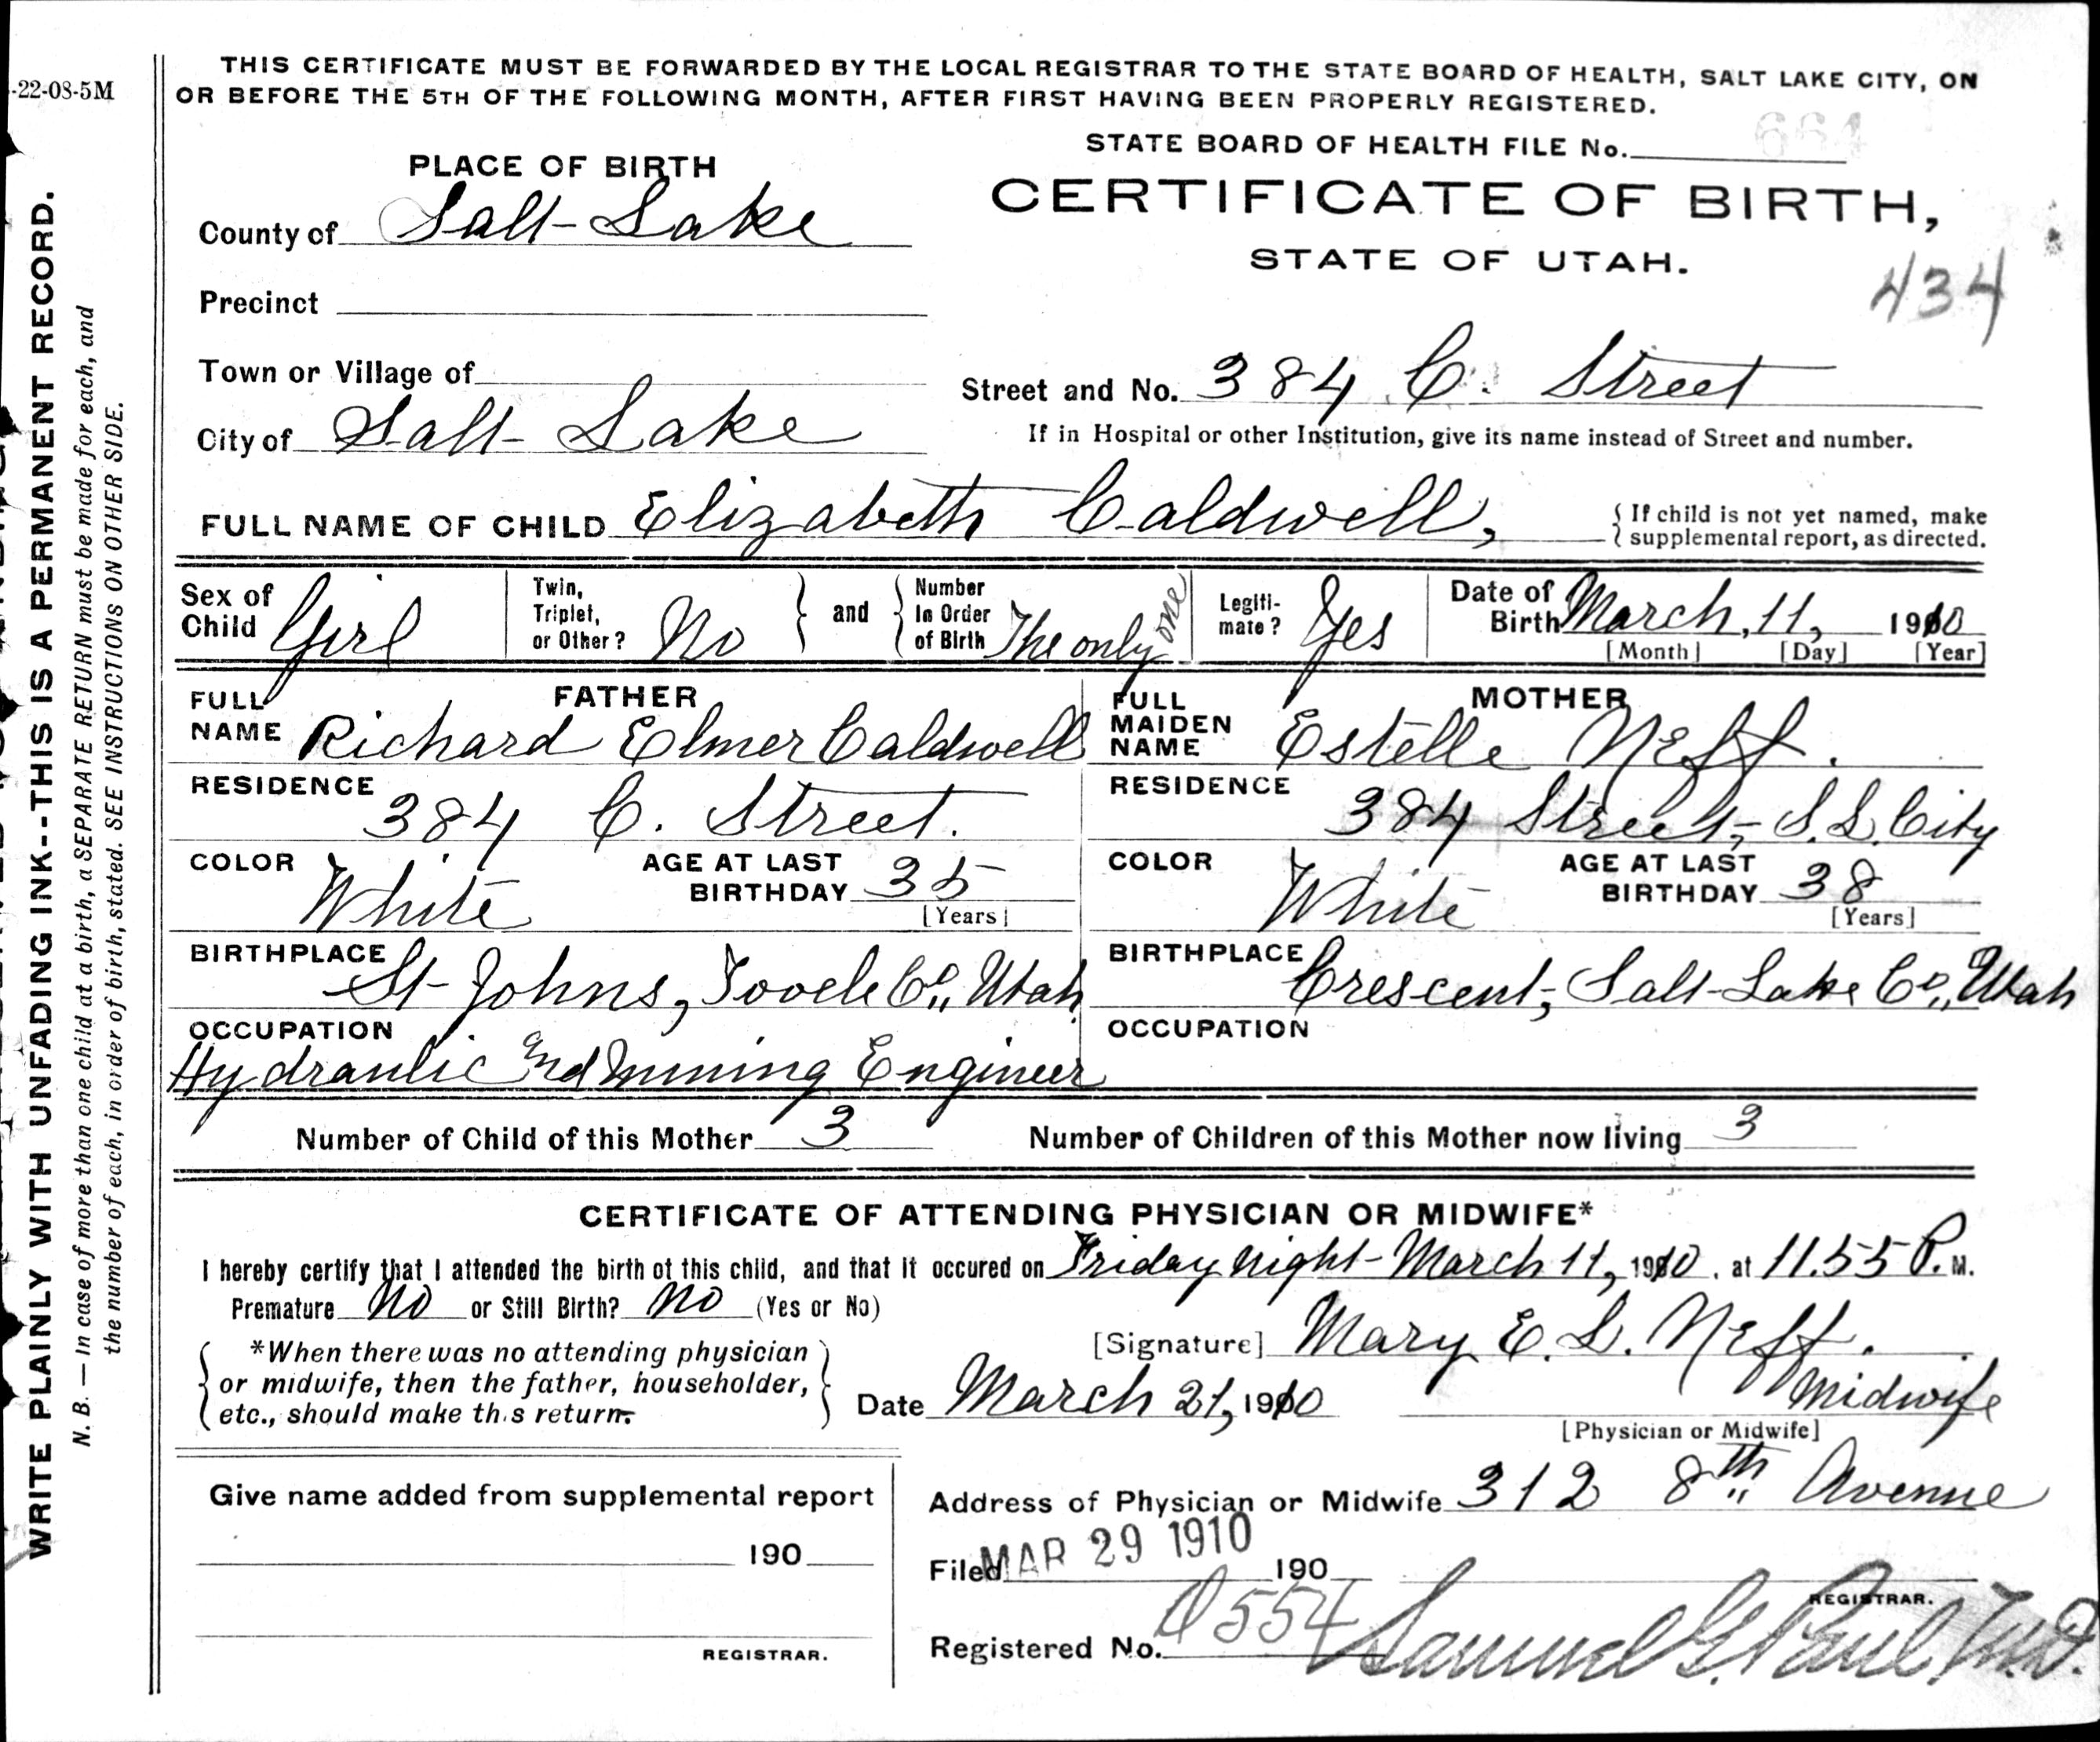 -22-08-5M
THIS CERTIFICATE MUST BE FORWARDED BY THE LOCAL REGISTRAR TO THE STATE BOARD OF HEALTH, SALT LAKE CITY, ON
OR BEFORE THE 5TH OF THE FOLLOWING MONTH, AFTER FIRST HAVING BEEN PROPERLY REGISTERED.
WRITE PLAINLY WITH UNFADING INK--THIS IS A PERMANENT RECORD.
N. B. — In case of more than one child at a birth, a SEPARATE RETURN must be made for each, and
the number of each, in order of birth, stated. SEE INSTRUCTIONS ON OTHER SIDE.
STATE BOARD OF HEALTH FILE No. 664
CERTIFICATE OF BIRTH,
STATE OF UTAH.
434
PLACE OF BIRTH
County of Salt Lake
Precinct
Town or Village of
City of Salt Lake
Street and No. 384 C. Street
If in Hospital or other Institution, give its name instead of Street and number.
FULL NAME OF CHILD Elizabeth Caldwell,
{ If child is not yet named, make
{ supplemental report, as directed.
Sex of Child Girl
Twin, Triplet, or Other? No
and
Number In Order of Birth The only one
Legiti-mate? Yes
Date of Birth March, 11, 1910
[Month] [Day] [Year]
FATHER
FULL NAME Richard Elmer Caldwell
RESIDENCE 384 C. Street.
COLOR White AGE AT LAST BIRTHDAY 35
[Years]
BIRTHPLACE St Johns, Tooele Co., Utah
OCCUPATION
Hydraulic and Mining Engineer
MOTHER
FULL MAIDEN NAME Estelle Neff.
RESIDENCE 384 Street, S. L. City
COLOR White AGE AT LAST BIRTHDAY 38
[Years]
BIRTHPLACE Crescent, Salt Lake Co., Utah
OCCUPATION
Number of Child of this Mother 3 Number of Children of this Mother now living 3
CERTIFICATE OF ATTENDING PHYSICIAN OR MIDWIFE*
I hereby certify that I attended the birth of this child, and that it occured on Friday night - March 11, 1910, at 11.55 P. M.
Premature No or Still Birth? No (Yes or No)
*When there was no attending physician
or midwife, then the father, householder,
etc., should make this return.
[Signature] Mary E. L. Neff.
Date March 21, 1910 Midwife
[Physician or Midwife]
Give name added from supplemental report
190
REGISTRAR.
Address of Physician or Midwife 312 8th Avenue
Filed MAR 29 1910 190
REGISTRAR.
Registered No. D 554 Samuel G. Paul, M.D.